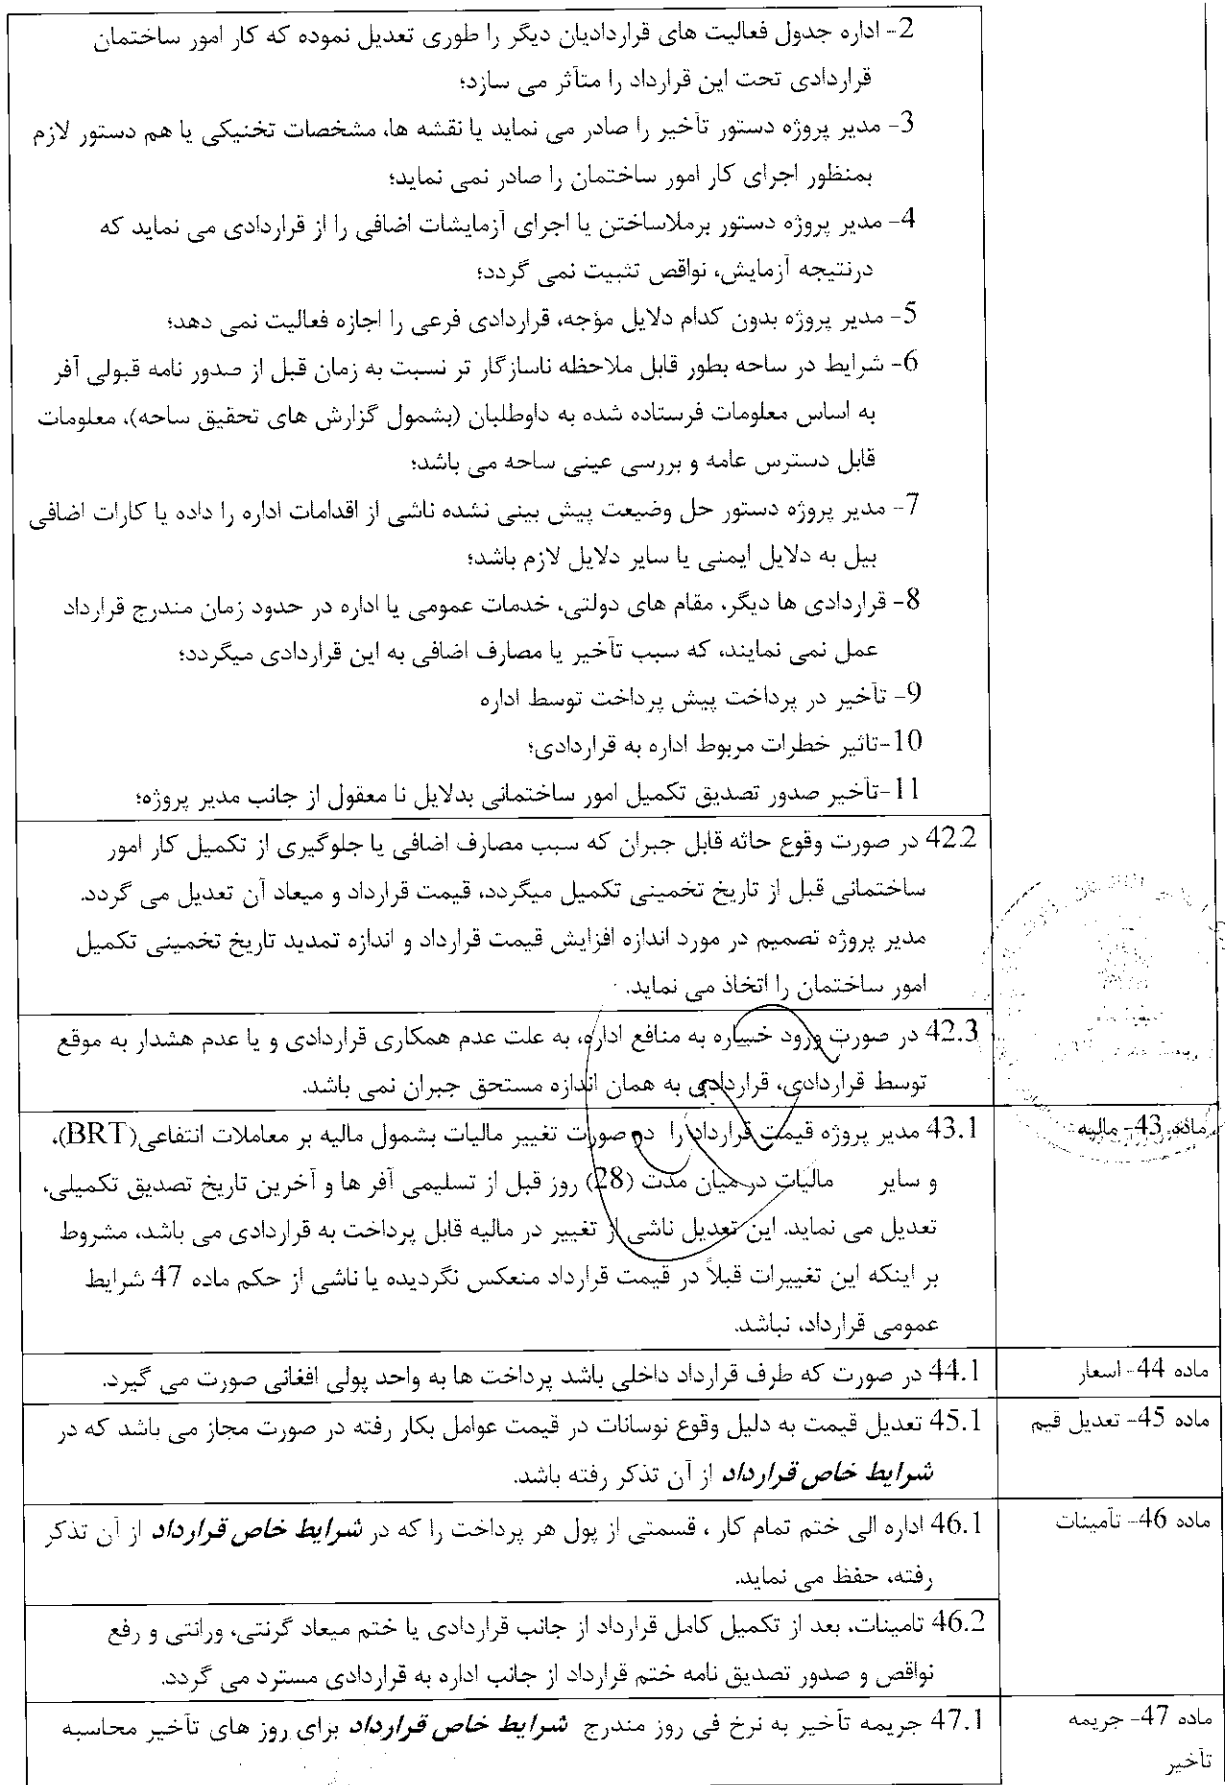 2- اداره جدول فعالیت های قراردادیان دیگر را طوری تعدیل نموده که کار امور ساختمان
قراردادی تحت این قرارداد را متآثر می سازد؛
3- مدیر پروژه دستور تآخیر را صادر می نماید یا نقشه ها، مشخصات تخنیکی یا هم دستور لازم
بمنظور اجرای کار امور ساختمان را صادر نمی نماید؛
4- مدیر پروژه دستور برملاساختن یا اجرای آزمایشات اضافی را از قراردادی می نماید که
درنتیجه آزمایش، نواقص تثبیت نمی گردد؛
5- مدیر پروژه بدون کدام دلایل مؤجه، قراردادی فرعی را اجازه فعالیت نمی دهد؛
6- شرایط در ساحه بطور قابل ملاحظه ناسازگار تر نسبت به زمان قبل از صدور نامه قبولی آفر
به اساس معلومات فرستاده شده به داوطلبان (بشمول گزارش های تحقیق ساحه)، معلومات
قابل دسترس عامه و بررسی عینی ساحه می باشد؛
7- مدیر پروژه دستور حل وضیعت پیش بینی نشده ناشی از اقدامات اداره را داده یا کارات اضافی
بیل به دلایل ایمنی یا سایر دلایل لازم باشد؛
8- قراردادی ها دیگر، مقام های دولتی، خدمات عمومی یا اداره در حدود زمان مندرج قرارداد
عمل نمی نمایند، که سبب تآخیر یا مصارف اضافی به این قراردادی میگردد؛
9- تآخیر در پرداخت پیش پرداخت توسط اداره
10-تاثیر خطرات مربوط اداره به قراردادی؛
11-تآخیر صدور تصدیق تکمیل امور ساختمانی بدلایل نا معقول از جانب مدیر پروژه؛
42.2 در صورت وقوع حاثه قابل جبران که سبب مصارف اضافی یا جلوگیری از تکمیل کار امور
ساختمانی قبل از تاریخ تخمینی تکمیل میگردد، قیمت قرارداد و میعاد آن تعدیل می گردد.
مدیر پروژه تصمیم در مورد اندازه افزایش قیمت قرارداد و اندازه تمدید تاریخ تخمینی تکمیل
امور ساختمان را اتخاذ می نماید.
42.3 در صورت ورود خساره به منافع اداره، به علت عدم همکاری قراردادی و یا عدم هشدار به موقع
توسط قراردادی، قراردادی به همان اندازه مستحق جبران نمی باشد.
ماده 43- مالیه
43.1 مدیر پروژه قیمت قرارداد را در صورت تغییر مالیات بشمول مالیه بر معاملات انتفاعی(BRT)،
و سایر مالیات در میان مدت (28) روز قبل از تسلیمی آفر ها و آخرین تاریخ تصدیق تکمیلی،
تعدیل می نماید. این تعدیل ناشی از تغییر در مالیه قابل پرداخت به قراردادی می باشد، مشروط
بر اینکه این تغییرات قبلاً در قیمت قرارداد منعکس نگردیده یا ناشی از حکم ماده 47 شرایط
عمومی قرارداد، نباشد.
ماده 44- اسعار
44.1 در صورت که طرف قرارداد داخلی باشد پرداخت ها به واحد پولی افغانی صورت می گیرد.
ماده 45- تعدیل قیم
45.1 تعدیل قیمت به دلیل وقوع نوسانات در قیمت عوامل بکار رفته در صورت مجاز می باشد که در
شرایط خاص قرارداد از آن تذکر رفته باشد.
ماده 46- تآمینات
46.1 اداره الی ختم تمام کار ، قسمتی از پول هر پرداخت را که در شرایط خاص قرارداد از آن تذکر
رفته، حفظ می نماید.
46.2 تامینات، بعد از تکمیل کامل قرارداد از جانب قراردادی یا ختم میعاد گرنتی، ورانتی و رفع
نواقص و صدور تصدیق نامه ختم قرارداد از جانب اداره به قراردادی مسترد می گردد.
ماده 47- جریمه
تآخیر
47.1 جریمه تآخیر به نرخ فی روز مندرج شرایط خاص قرارداد برای روز های تآخیر محاسبه